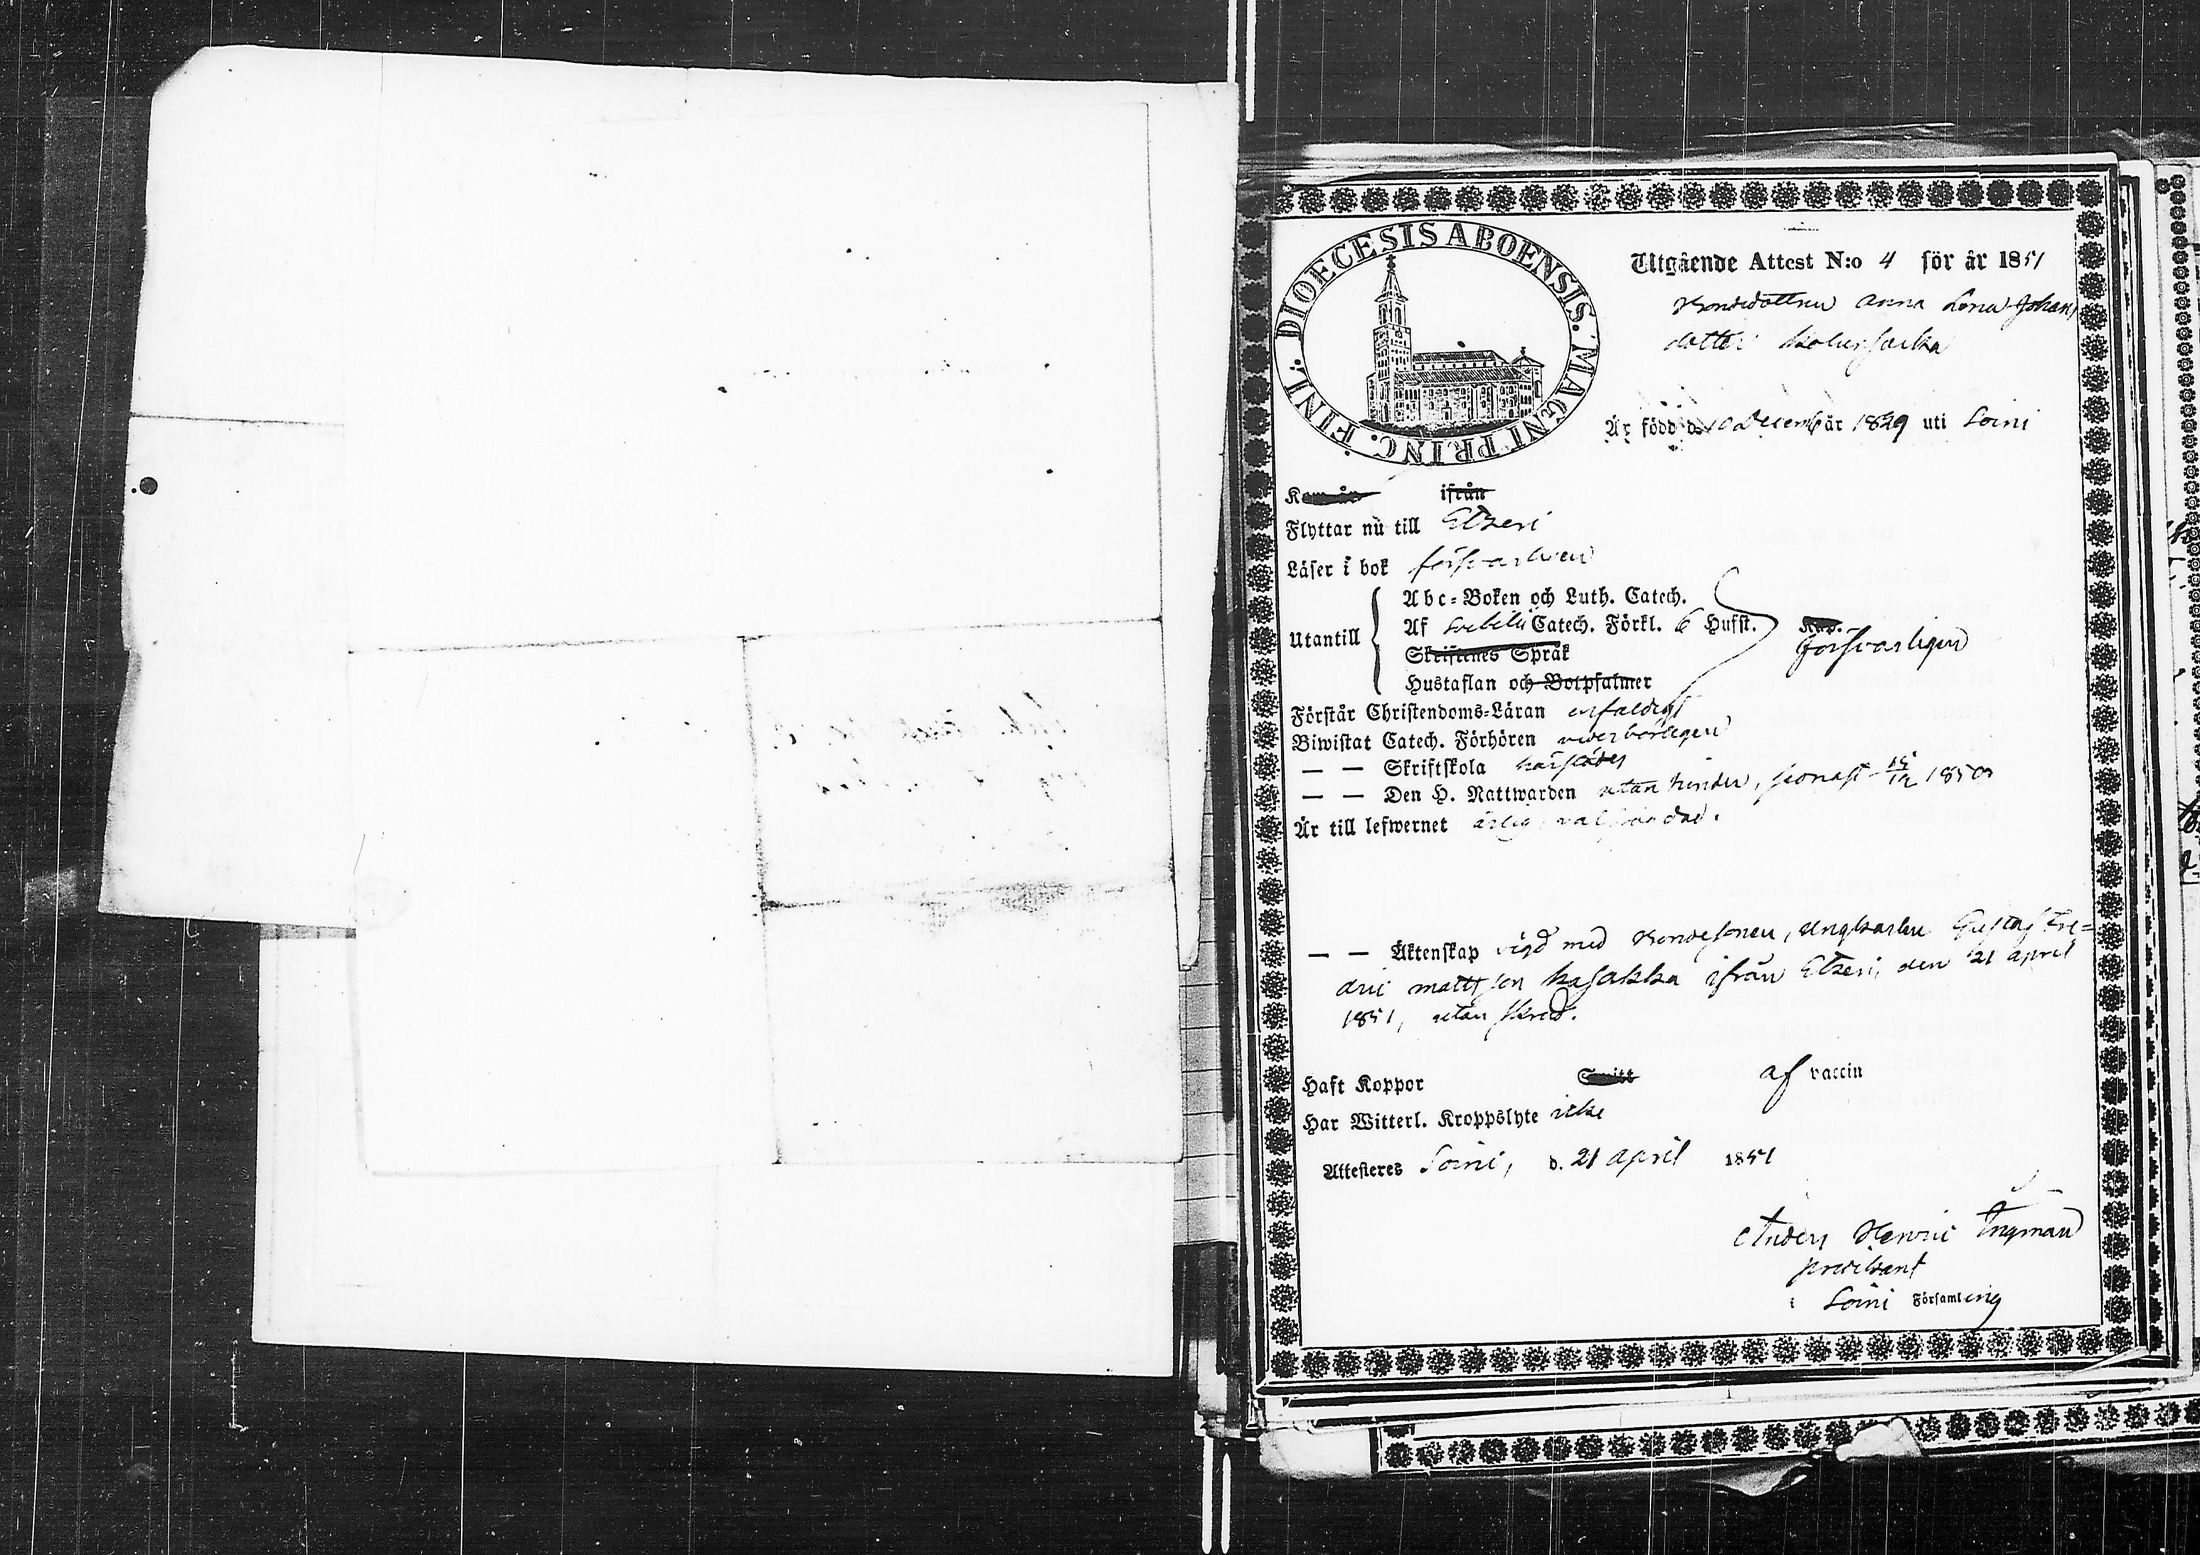 DIOECESIS ABOENSIS. MAGNI PRINC. FINL.
Utgående Attest N:o 4 för år 1851
Bondedottren Anna Lena Johans
dotter
Är född d. 10 Decemb år 1829 uti Soini
Kom år ifrån
Flyttar nu till Etseri
Läser i bok försvarligen
Utantill
Abc-Boken och Luth. Catech.
Af Svebilii Catech. Förkl. 6 Hufst.
Skriftenes Språk
Hustaflan och Botpsalmer
försvarligen
Förstår Christendoms-Läran enfaldigt
Biwistat Catech. Förhören vederbörligen
— — Skriftskola härstädes
— — Den H. Nattwarden utan hinder, senast 15/12 1850
Är till lefwernet ärlig, välfrändad.
— — Äktenskap vigd med Bondesonen, Ungkarlen Gustaf Fre=
dric Mattsson Kasakka ifrån Etseri, den 21 April
1851, utan skrud.
Haft Koppor af vaccin
Har Witterl. Kroppslyte icke
Attesteres Soini, d. 21 April 1851
Anders Henric Ingman
predikant
i Soini Församling